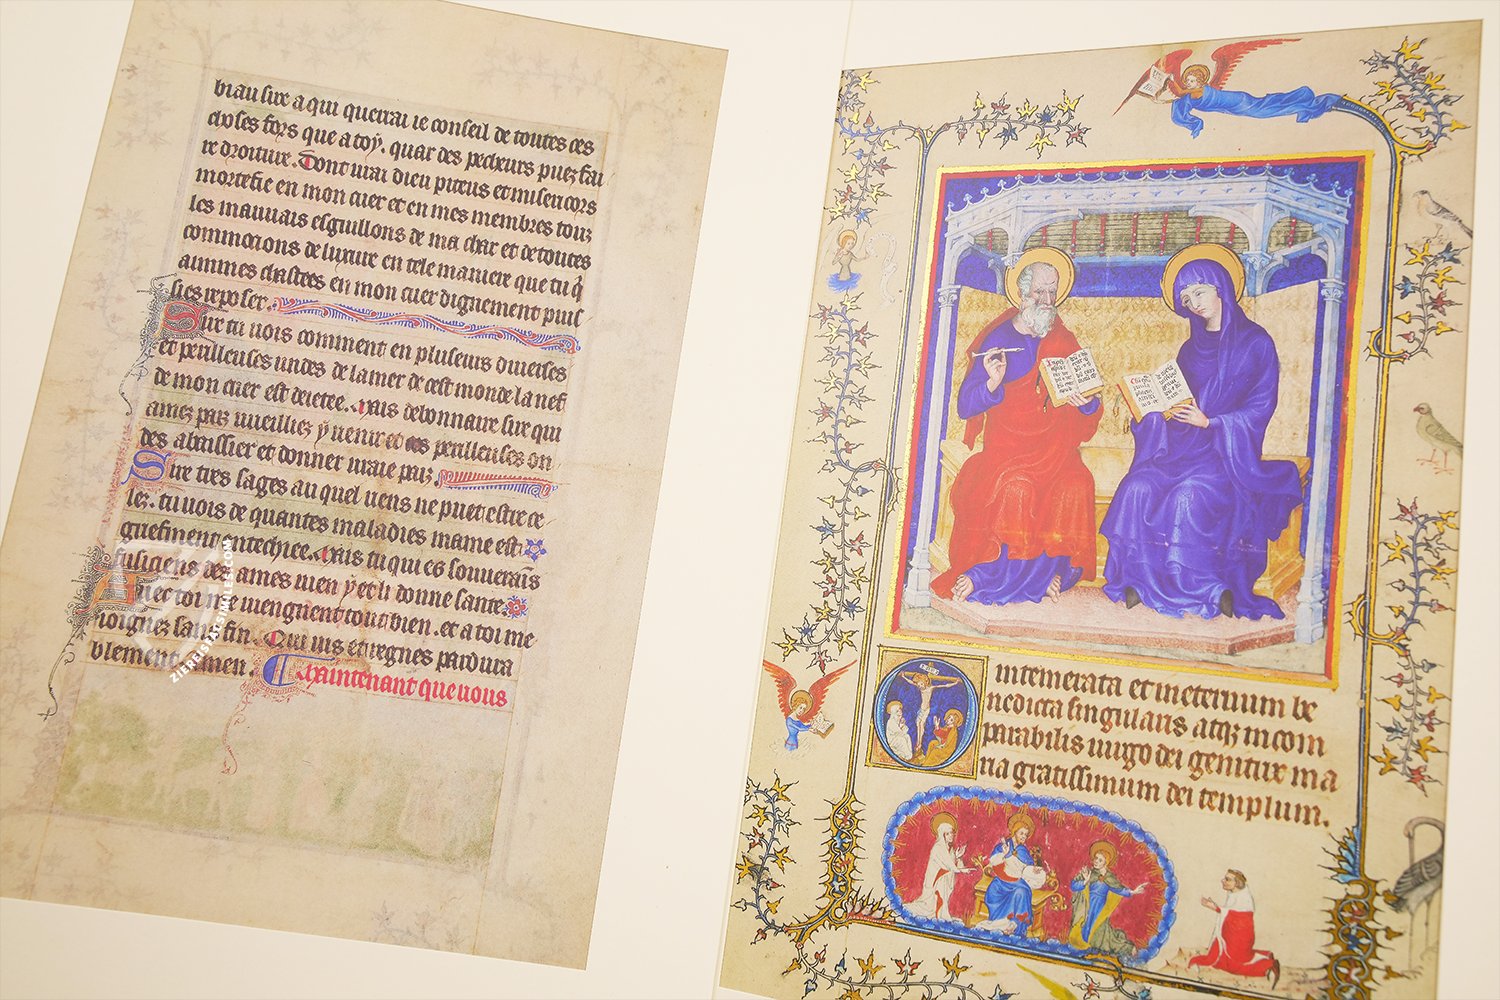 biau sire a qui querrai ie conseil de toutes ces
choses fors que a toy. quar des pecheurs puez fai
re droiture. Dont vrai dieu piteus et misericors
mortefie en mon cuer et en mes membres touz
les mauvais esguillons de ma char et de toutes
commocions de luxure en tele maniere que tu q̃
aimmes chastees en mon cuer dignement puis
ses reposer.
Sire tu vois comment en pluseurs diverses
et perilleuses undes de la mer de cest monde la nef
de mon cuer est deietee. Mais debonnaire sire qui
amez paiz vueilliez ỹ venir et ces perilleuses on
des abaissier et donner vraie paiz
Sire tres sages au quel riens ne puet estre ce
lez. tu vois de quantes maladies mame est
griefment entechiee. Mais tu qui es souverais̃
fusiciens des ames vien ỹ et li donne sante
Avec toi me viengnent tout bien. et a toi me
ioignes sans fin. Qui vis et regnes pardura
blement amen. Maintenant que vous
O intemerata et ineternum be
nedicta singularis atqz incom
parabilis virgo dei genitrix ma
ria gratissimum dei templum.
ZIEREISFACSIMILES.COM